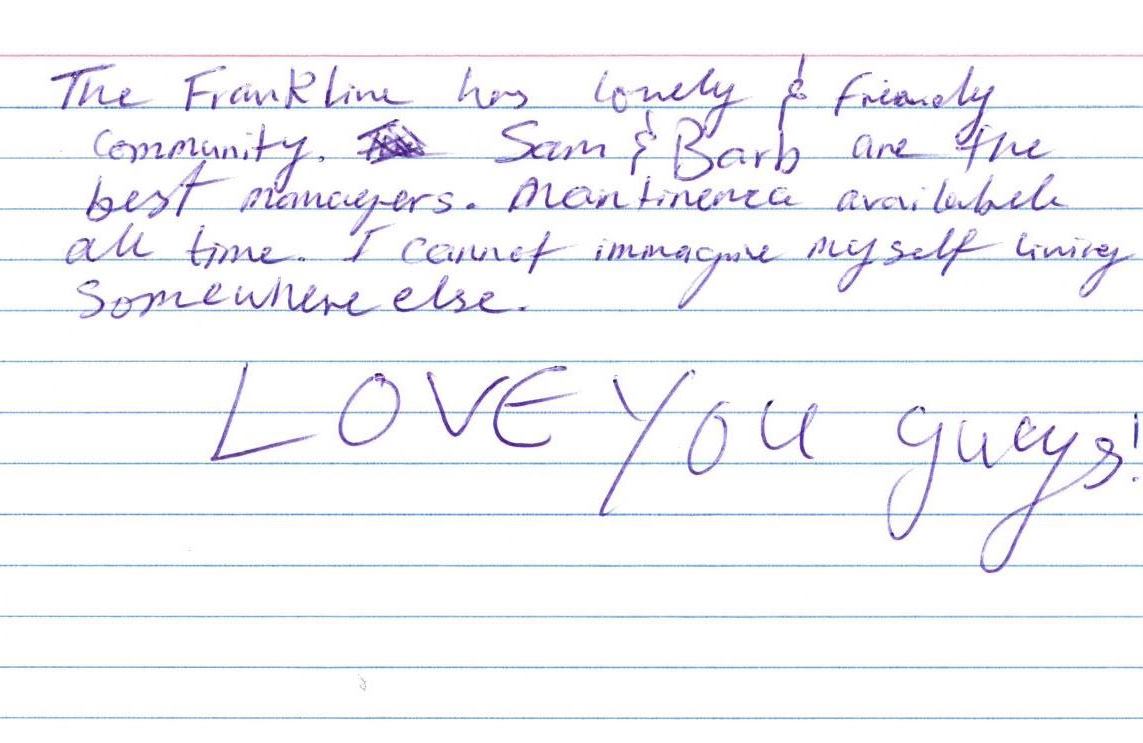 The Frankline has lovely & friendly
community. Sam & Barb are the
best managers. Mantinence availabele
all time. I cannot immagine myself living
somewhere else.
LOVE YOU guys!